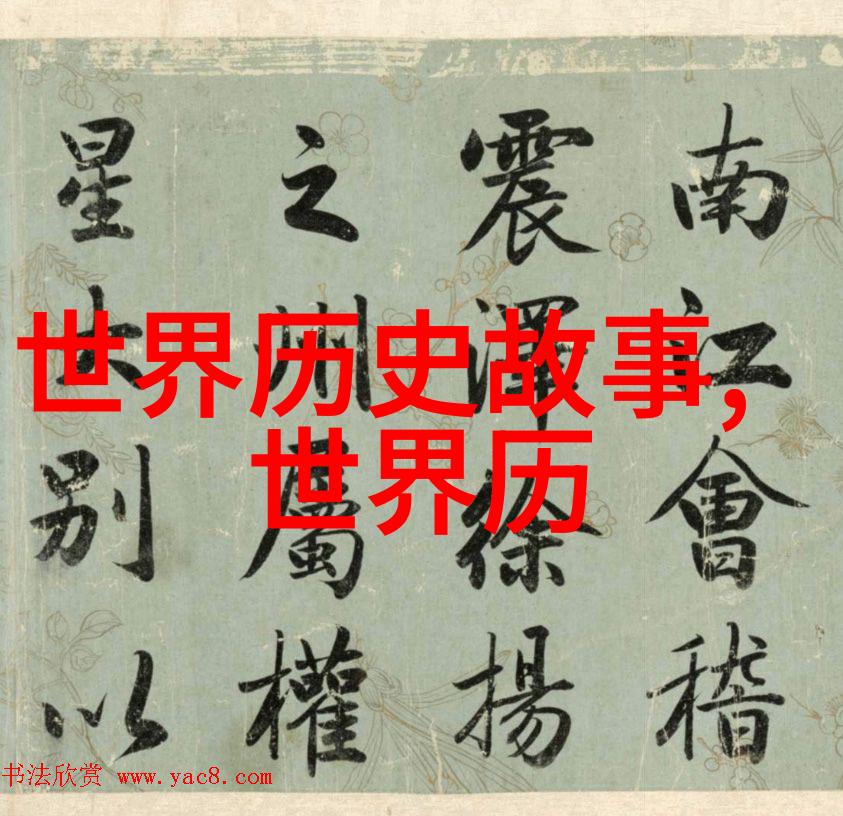 世界历史故事,
世界历
南江會稽
震澤徐揚
之州屬權
星大別以
书法欣赏 www.yac8.com